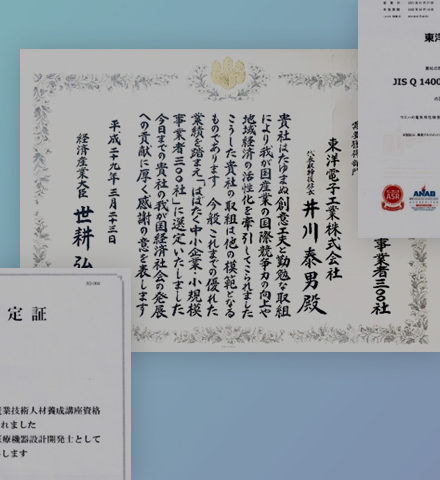 事業者三〇〇社
東洋電子工業株式会社
代表取締役社長 井川泰男殿
貴社はたゆまぬ創意工夫と勤勉な取組
により我が国産業の国際競争力の向上や
地域経済の活性化を牽引してこられました
こうした貴社の取組は他の模範となる
ものであります 今般 これまでの優れた
業績を踏まえ「はばたく中小企業・小規模
事業者三〇〇社」に選定いたしました
今日までの貴社の我が国経済社会の発展
への貢献に厚く感謝の意を表します
平成二十九年 三月二十三日
経済産業大臣 世耕弘
東洋
JIS Q 1400
ASR
ANAB
定証
産業技術人材養成講座資格
れました
医療機器設計開発士として
します